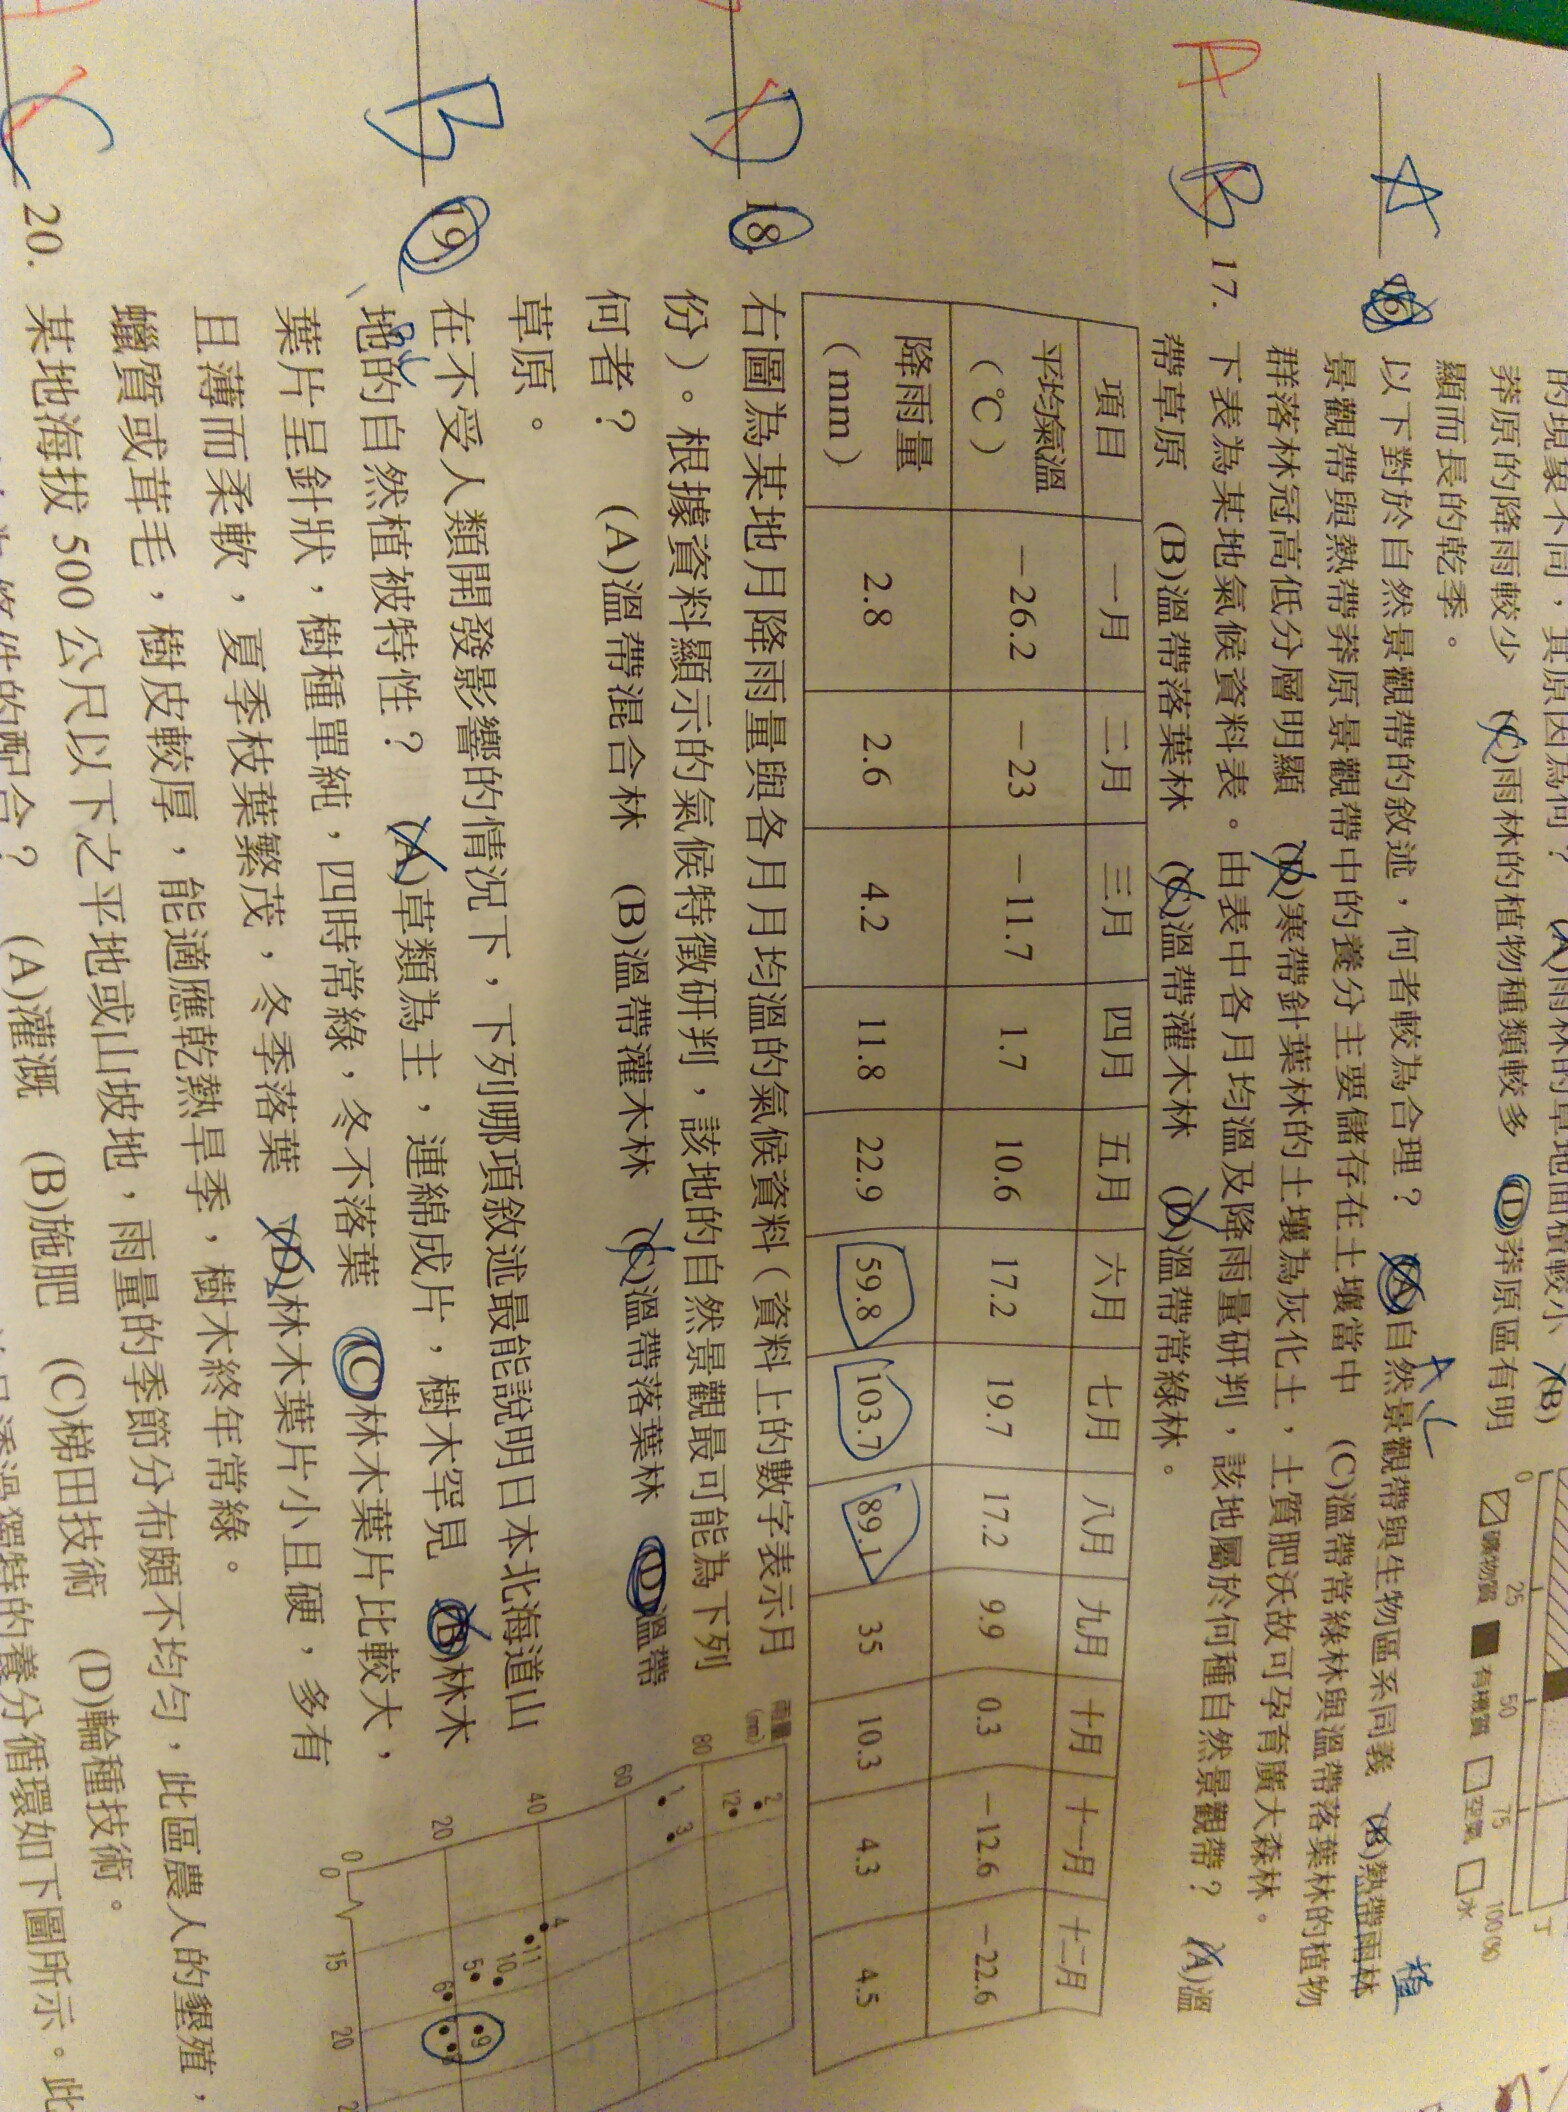 的現象不同，其原因為何？ (A)雨林的草地面積較小 (B)
莽原的降雨較少 (C)雨林的植物種類較多 (D)莽原區有明
顯而長的乾季。
0 25 50 75 100%
礦物質 有機質 空氣 水
丁
A 16. 以下對於自然景觀帶的敘述，何者較為合理？ (A)自然景觀帶與生物區系同義 (B)熱帶雨林
景觀帶與熱帶莽原景觀帶中的養分主要儲存在土壤當中 (C)溫帶常綠林與溫帶落葉林的植物
群落林冠高低分層明顯 (D)寒帶針葉林的土壤為灰化土，土質肥沃故可孕育廣大森林。
A B 17. 下表為某地氣候資料表。由表中各月均溫及降雨量研判，該地屬於何種自然景觀帶？ (A)溫
帶草原 (B)溫帶落葉林 (C)溫帶灌木林 (D)溫帶常綠林。
項目 一月 二月 三月 四月 五月 六月 七月 八月 九月 十月 十一月 十二月
平均氣溫（℃） －26.2 －23 －11.7 1.7 10.6 17.2 19.7 17.2 9.9 0.3 －12.6 －22.6
降雨量（mm） 2.8 2.6 4.2 11.8 22.9 59.8 103.7 89.1 35 10.3 4.3 4.5
D 18. 右圖為某地月降雨量與各月月均溫的氣候資料（資料上的數字表示月
份）。根據資料顯示的氣候特徵研判，該地的自然景觀最可能為下列
何者？ (A)溫帶混合林 (B)溫帶灌木林 (C)溫帶落葉林 (D)溫帶
草原。
雨量
(mm)
80
60
40
20
0
0 15 20
2 12 1 3 4 11 10 5 6 9
B 19. 在不受人類開發影響的情況下，下列哪項敘述最能說明日本北海道山
地的自然植被特性？ (A)草類為主，連綿成片，樹木罕見 (B)林木
葉片呈針狀，樹種單純，四時常綠，冬不落葉 (C)林木葉片比較大，
且薄而柔軟，夏季枝葉繁茂，冬季落葉 (D)林木葉片小且硬，多有
蠟質或茸毛，樹皮較厚，能適應乾熱旱季，樹木終年常綠。
C 20. 某地海拔 500 公尺以下之平地或山坡地，雨量的季節分布頗不均勻，此區農人的墾殖，
(A)灌溉 (B)施肥 (C)梯田技術 (D)輪種技術。